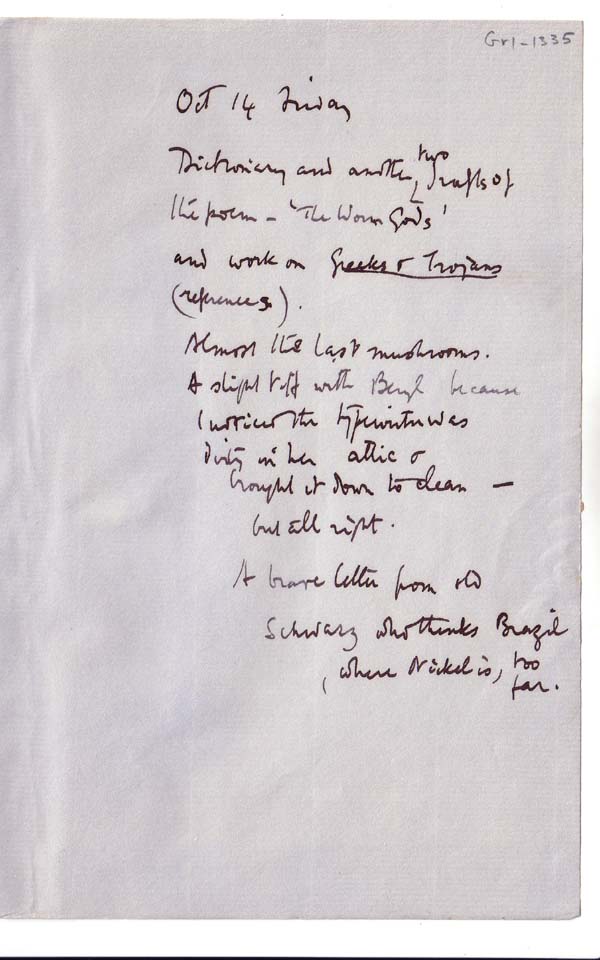 Gr1-1335
Oct 14 Friday
Dictionary and another, two drafts of
the poem - 'The Worm Gods'
and work on Greeks & Trojans
(references).
Almost the last mushrooms.
A slight tiff with Beryl because
I noticed the typewriter was
dirty in her attic &
brought it down to clean —
but all right.
A brave letter from old
Schwarz who thinks Brazil
, where Nickel is, too
far.